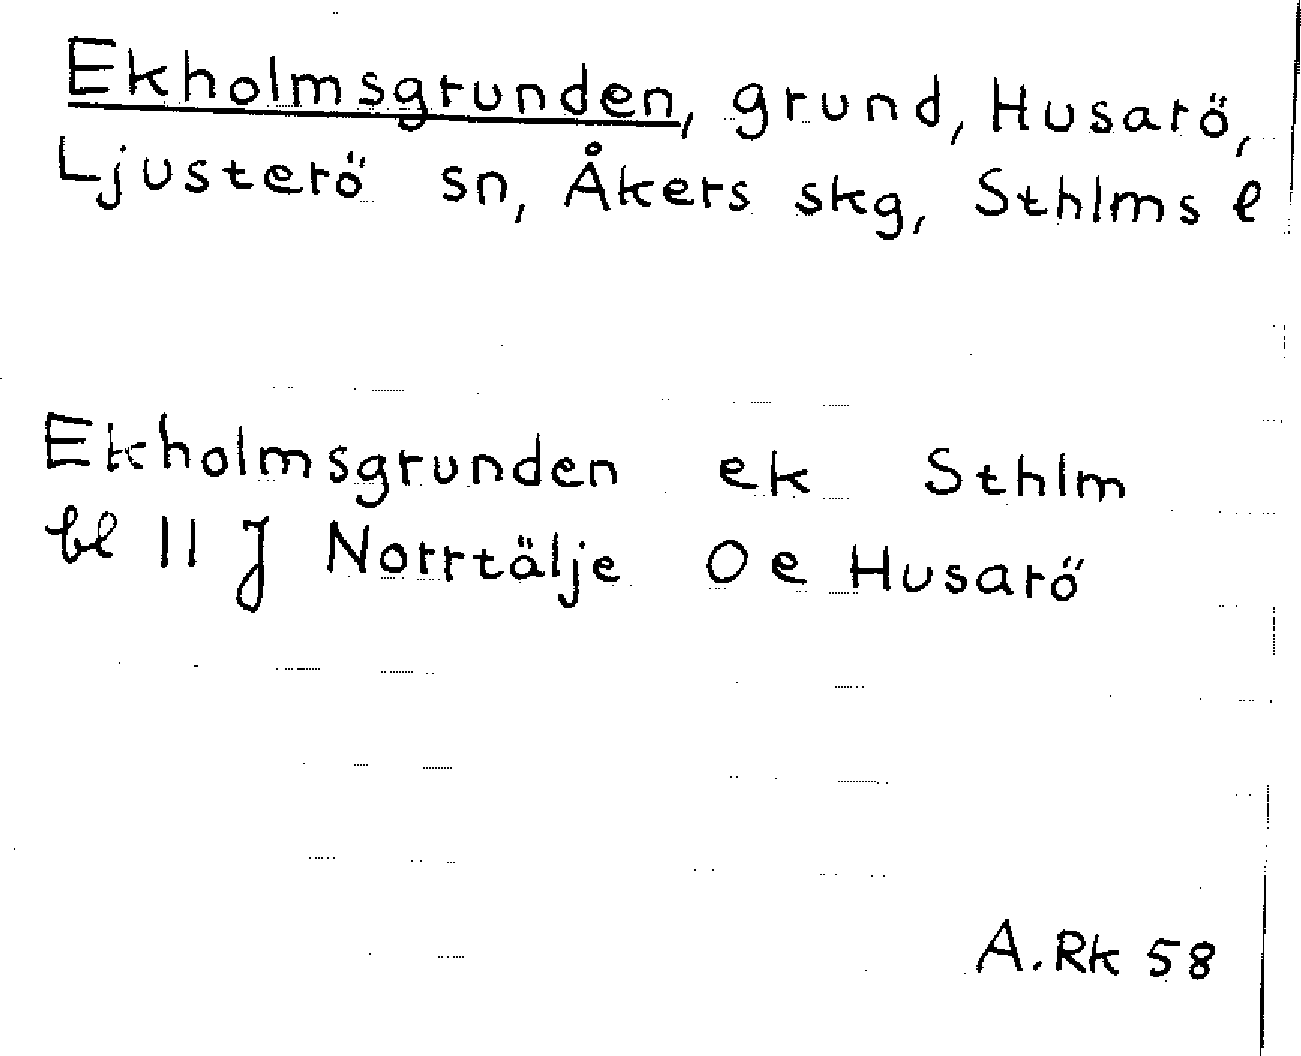 Ekholmsgrunden, grund, Husarö,
Ljusterö sn, Åkers skg, Sthlms l
Ekholmsgrunden ek Sthlm
bl 11 J Norrtälje O e Husarö
A. Rk 58